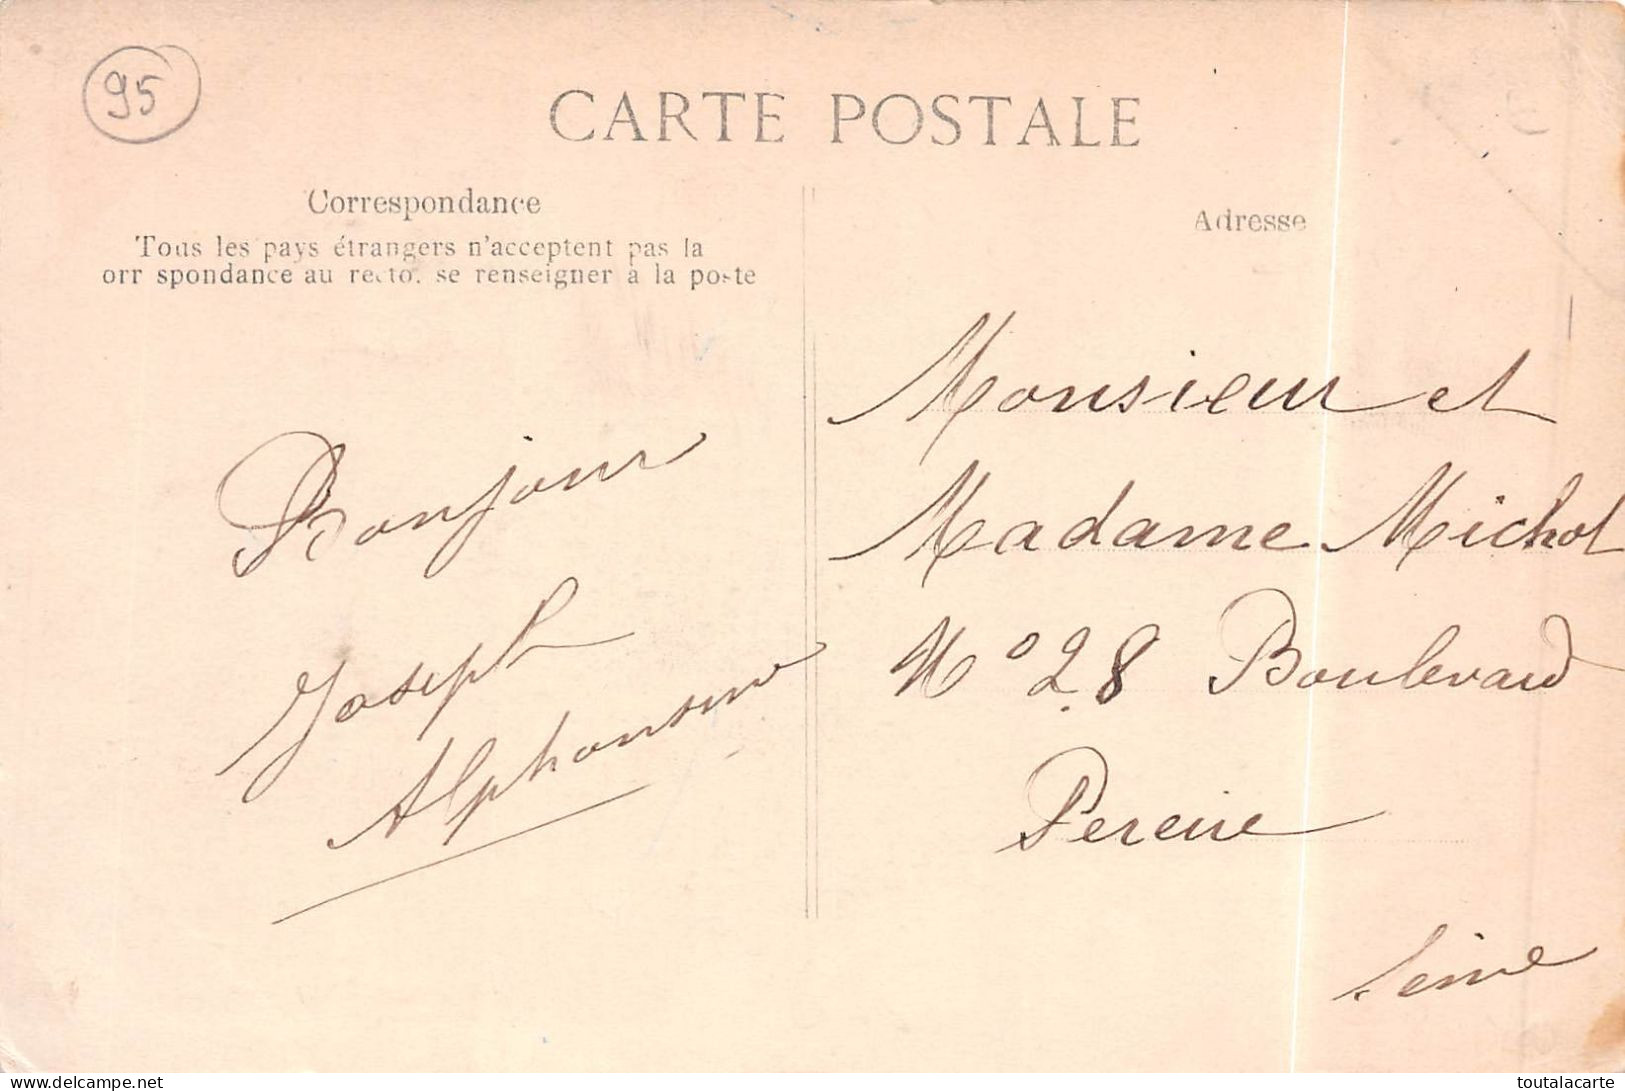 95
CARTE POSTALE
Correspondance
Tous les pays étrangers n'acceptent pas la
orr spondance au recto. se renseigner à la poste
Adresse
Bonjour
Joseph
Alphonsine
Monsieur et
Madame Michot
No 28 Boulevard
Pereire
Seine
www.delcampe.net
toutalacarte